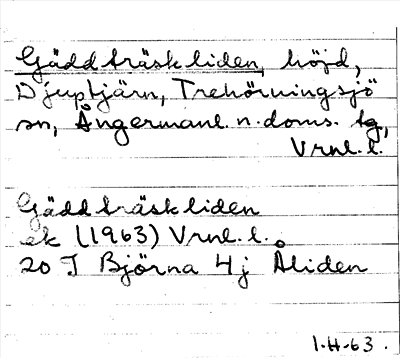 Gäddträskliden, höjd,
Djuptjärn, Trehörningsjö
sn, Ångermanl. n. doms. tg,
Vrnl. l.
Gäddträskliden
ek (1963) Vrnl. l.
20 J Björna 4j Åliden
1.H.63.